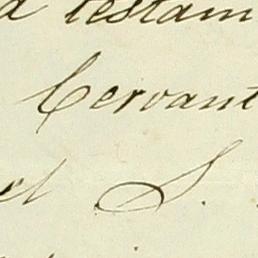 a testam
Cervant
el S.